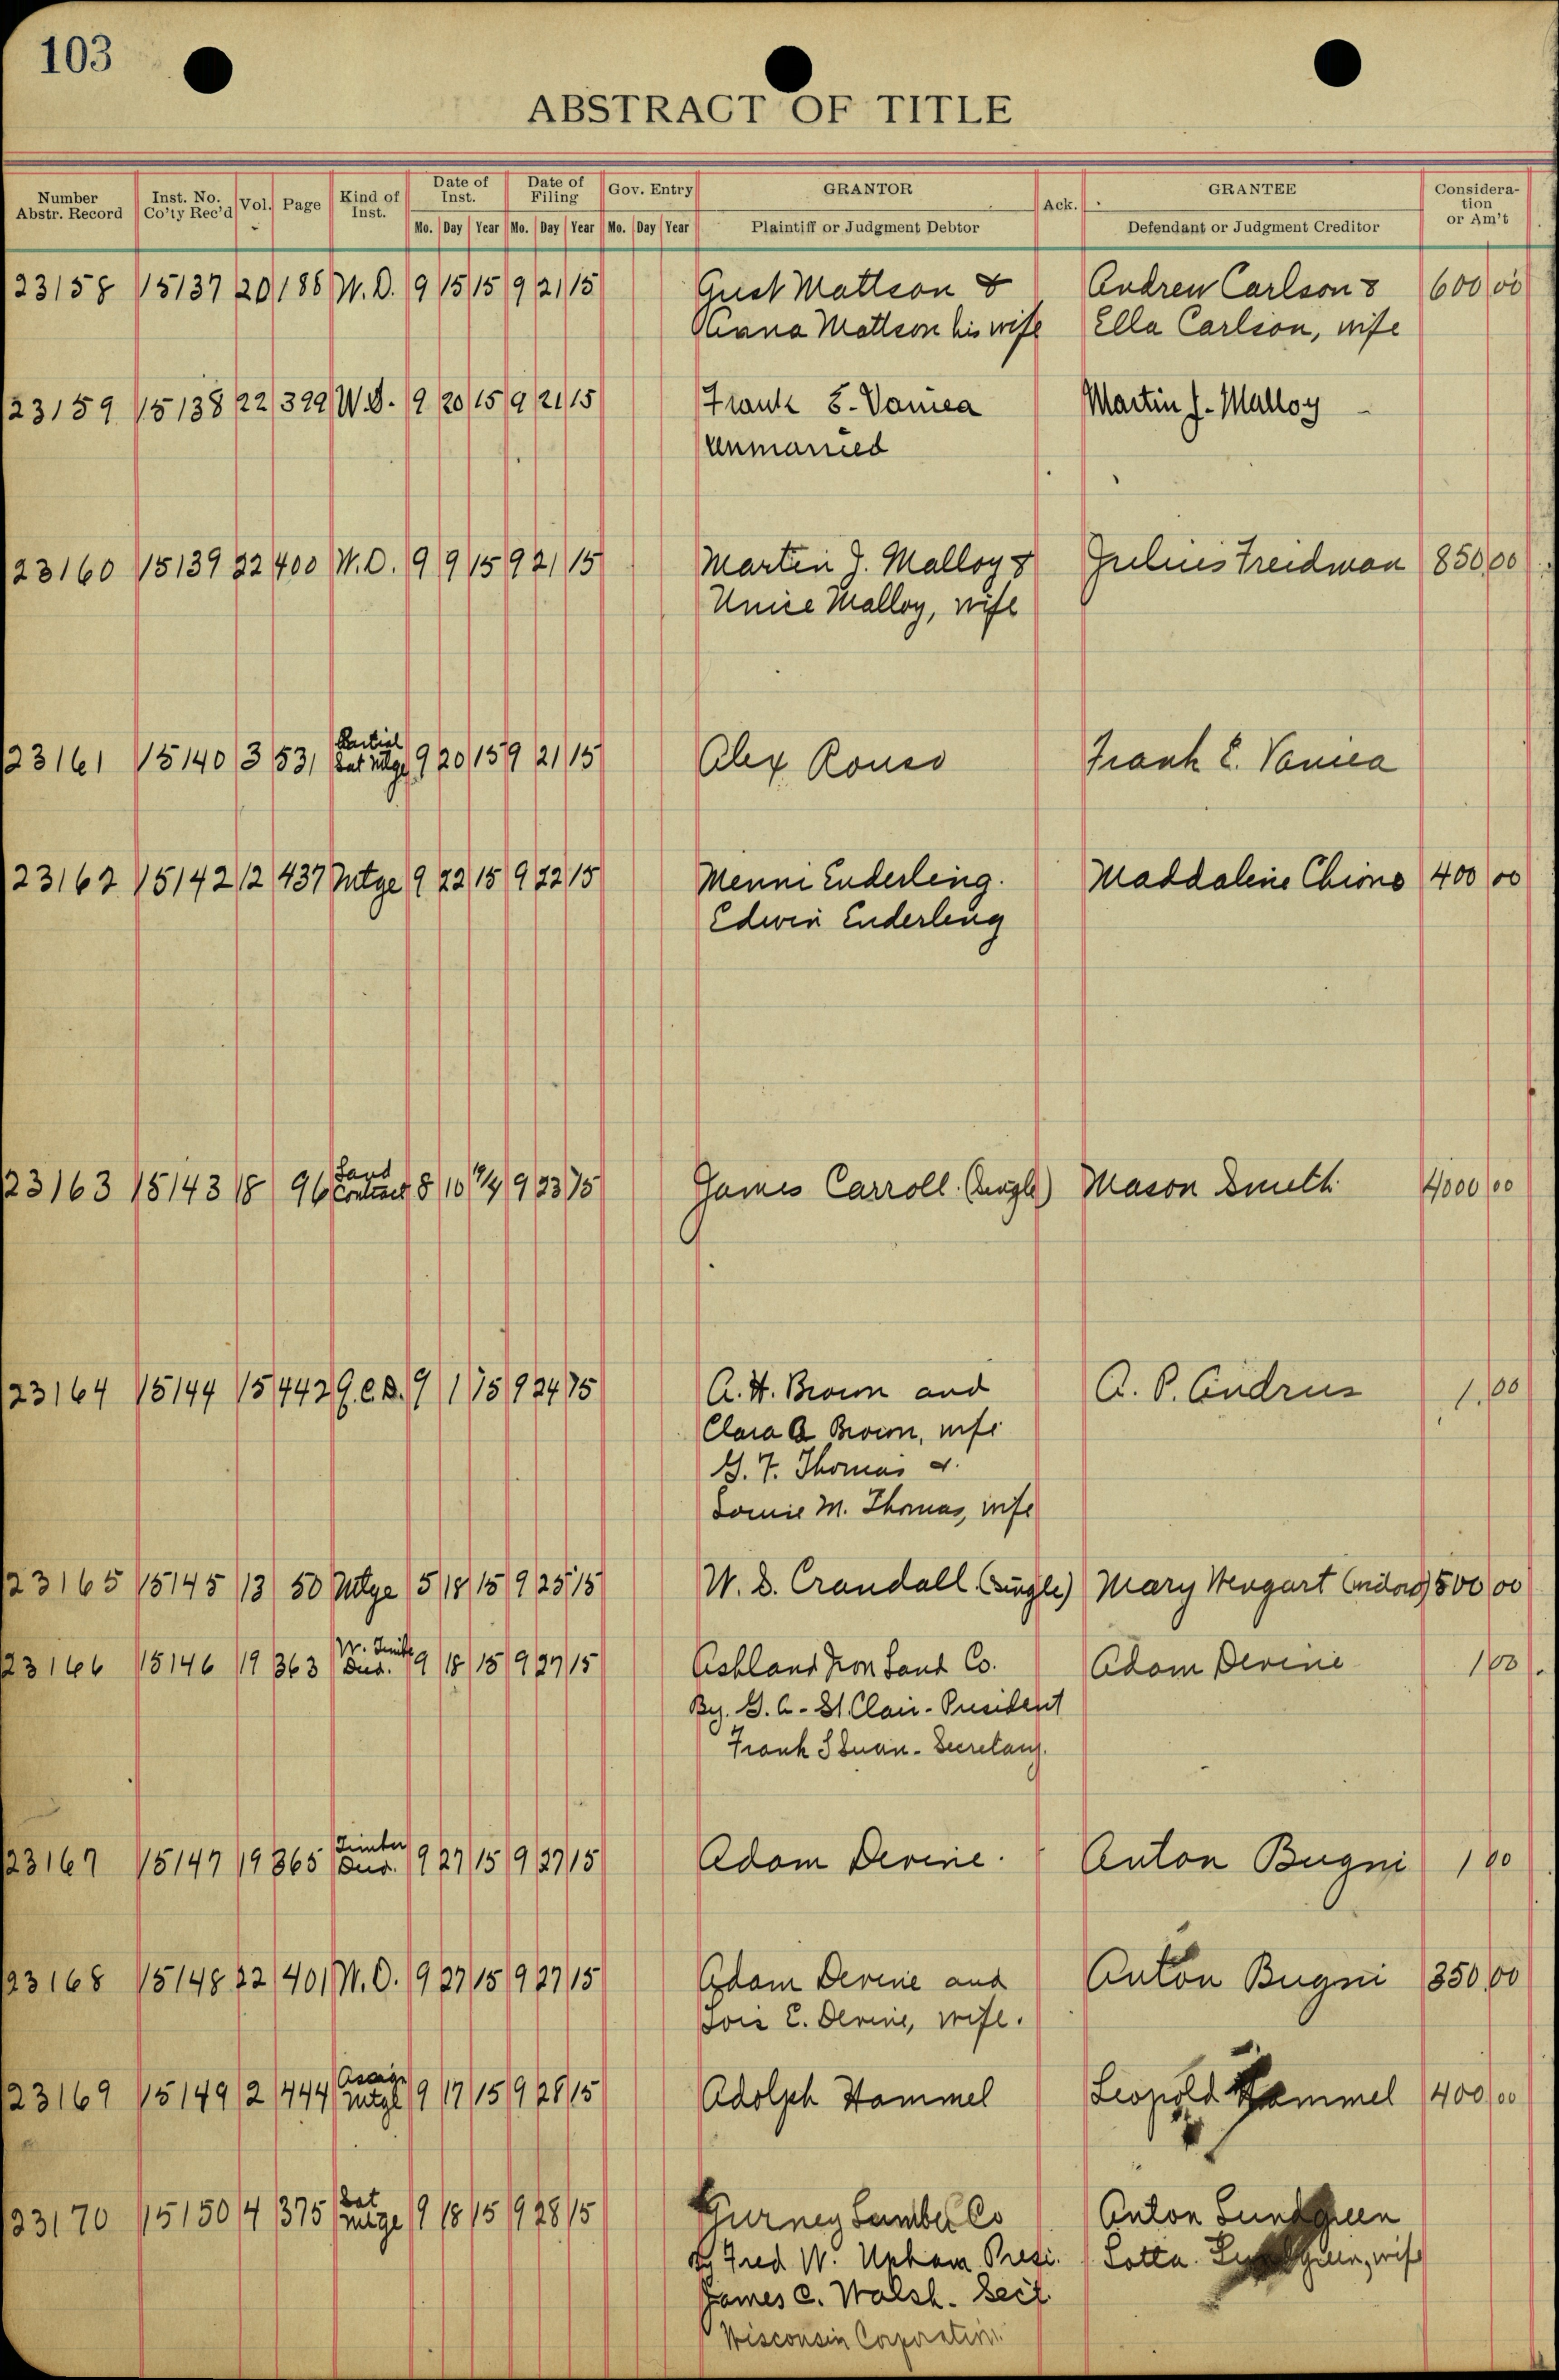 103
ABSTRACT OF TITLE
Number Abstr. Record Inst. No. Co'ty Rec'd Vol. Page Kind of Inst. Date of Inst. Date of Filing Gov. Entry GRANTOR Ack. GRANTEE Consideration or Am't
Mo. Day Year Mo. Day Year Mo. Day Year Plaintiff or Judgment Debtor Defendant or Judgment Creditor
23158 15137 20 188 W.D. 9 15 15 9 21 15 Gust Mattson & Andrew Carlson & 600 00
Anna Mattson his wife Ella Carlson, wife
23159 15138 22 399 W.D. 9 20 15 9 21 15 Frank E. Vanica Martin J. Malloy
unmarried
23160 15139 22 400 W.D. 9 9 15 9 21 15 Martin J. Malloy & Julius Freidman 850 00
Unice Malloy, wife
23161 15140 3 531 Partial Sat Mtge 9 20 15 9 21 15 Alex Rouso Frank E. Vanica
23162 15142 12 437 Mtge 9 22 15 9 22 15 Menni Enderling. Maddaline Chiono 400 00
Edwin Enderling
23163 15143 18 96 Land Contract 8 10 14 9 23 15 James Carroll. (single) Mason Smith 4000 00
23164 15144 15 442 Q.C.D. 9 1 15 9 24 15 A. H. Brown and A. P. Andrus 1.00
Clara A Brown, wife
G. F. Thomas &
Lomie M. Thomas, wife
23165 15145 13 50 Mtge 5 18 15 9 25 15 W. D. Crandall (single) Mary Wengart (widow) 500 00
23166 15146 19 363 W. Timber Deed. 9 18 15 9 27 15 Ashland Iron Land Co. Adam Devine 1 00
By. G. A. St. Clair - President
Frank - Secretary.
23167 15147 19 365 Timber Deed. 9 27 15 9 27 15 Adam Devine. Anton Bugni 1 00
23168 15148 22 401 W.D. 9 27 15 9 27 15 Adam Devine and Anton Bugni 350 00
Lois E. Devine, wife.
23169 15149 2 444 Assign Mtge 9 17 15 9 28 15 Adolph Hammel Leopold Hammel 400 00
23170 15150 4 375 Sat Mtge 9 18 15 9 28 15 Gurney Lumber Co Anton Lundgreen
By Fred W. Upham Presi. Lotta. Lundgreen, wife
James C. Walsh. Sect.
Wisconsin Corporation